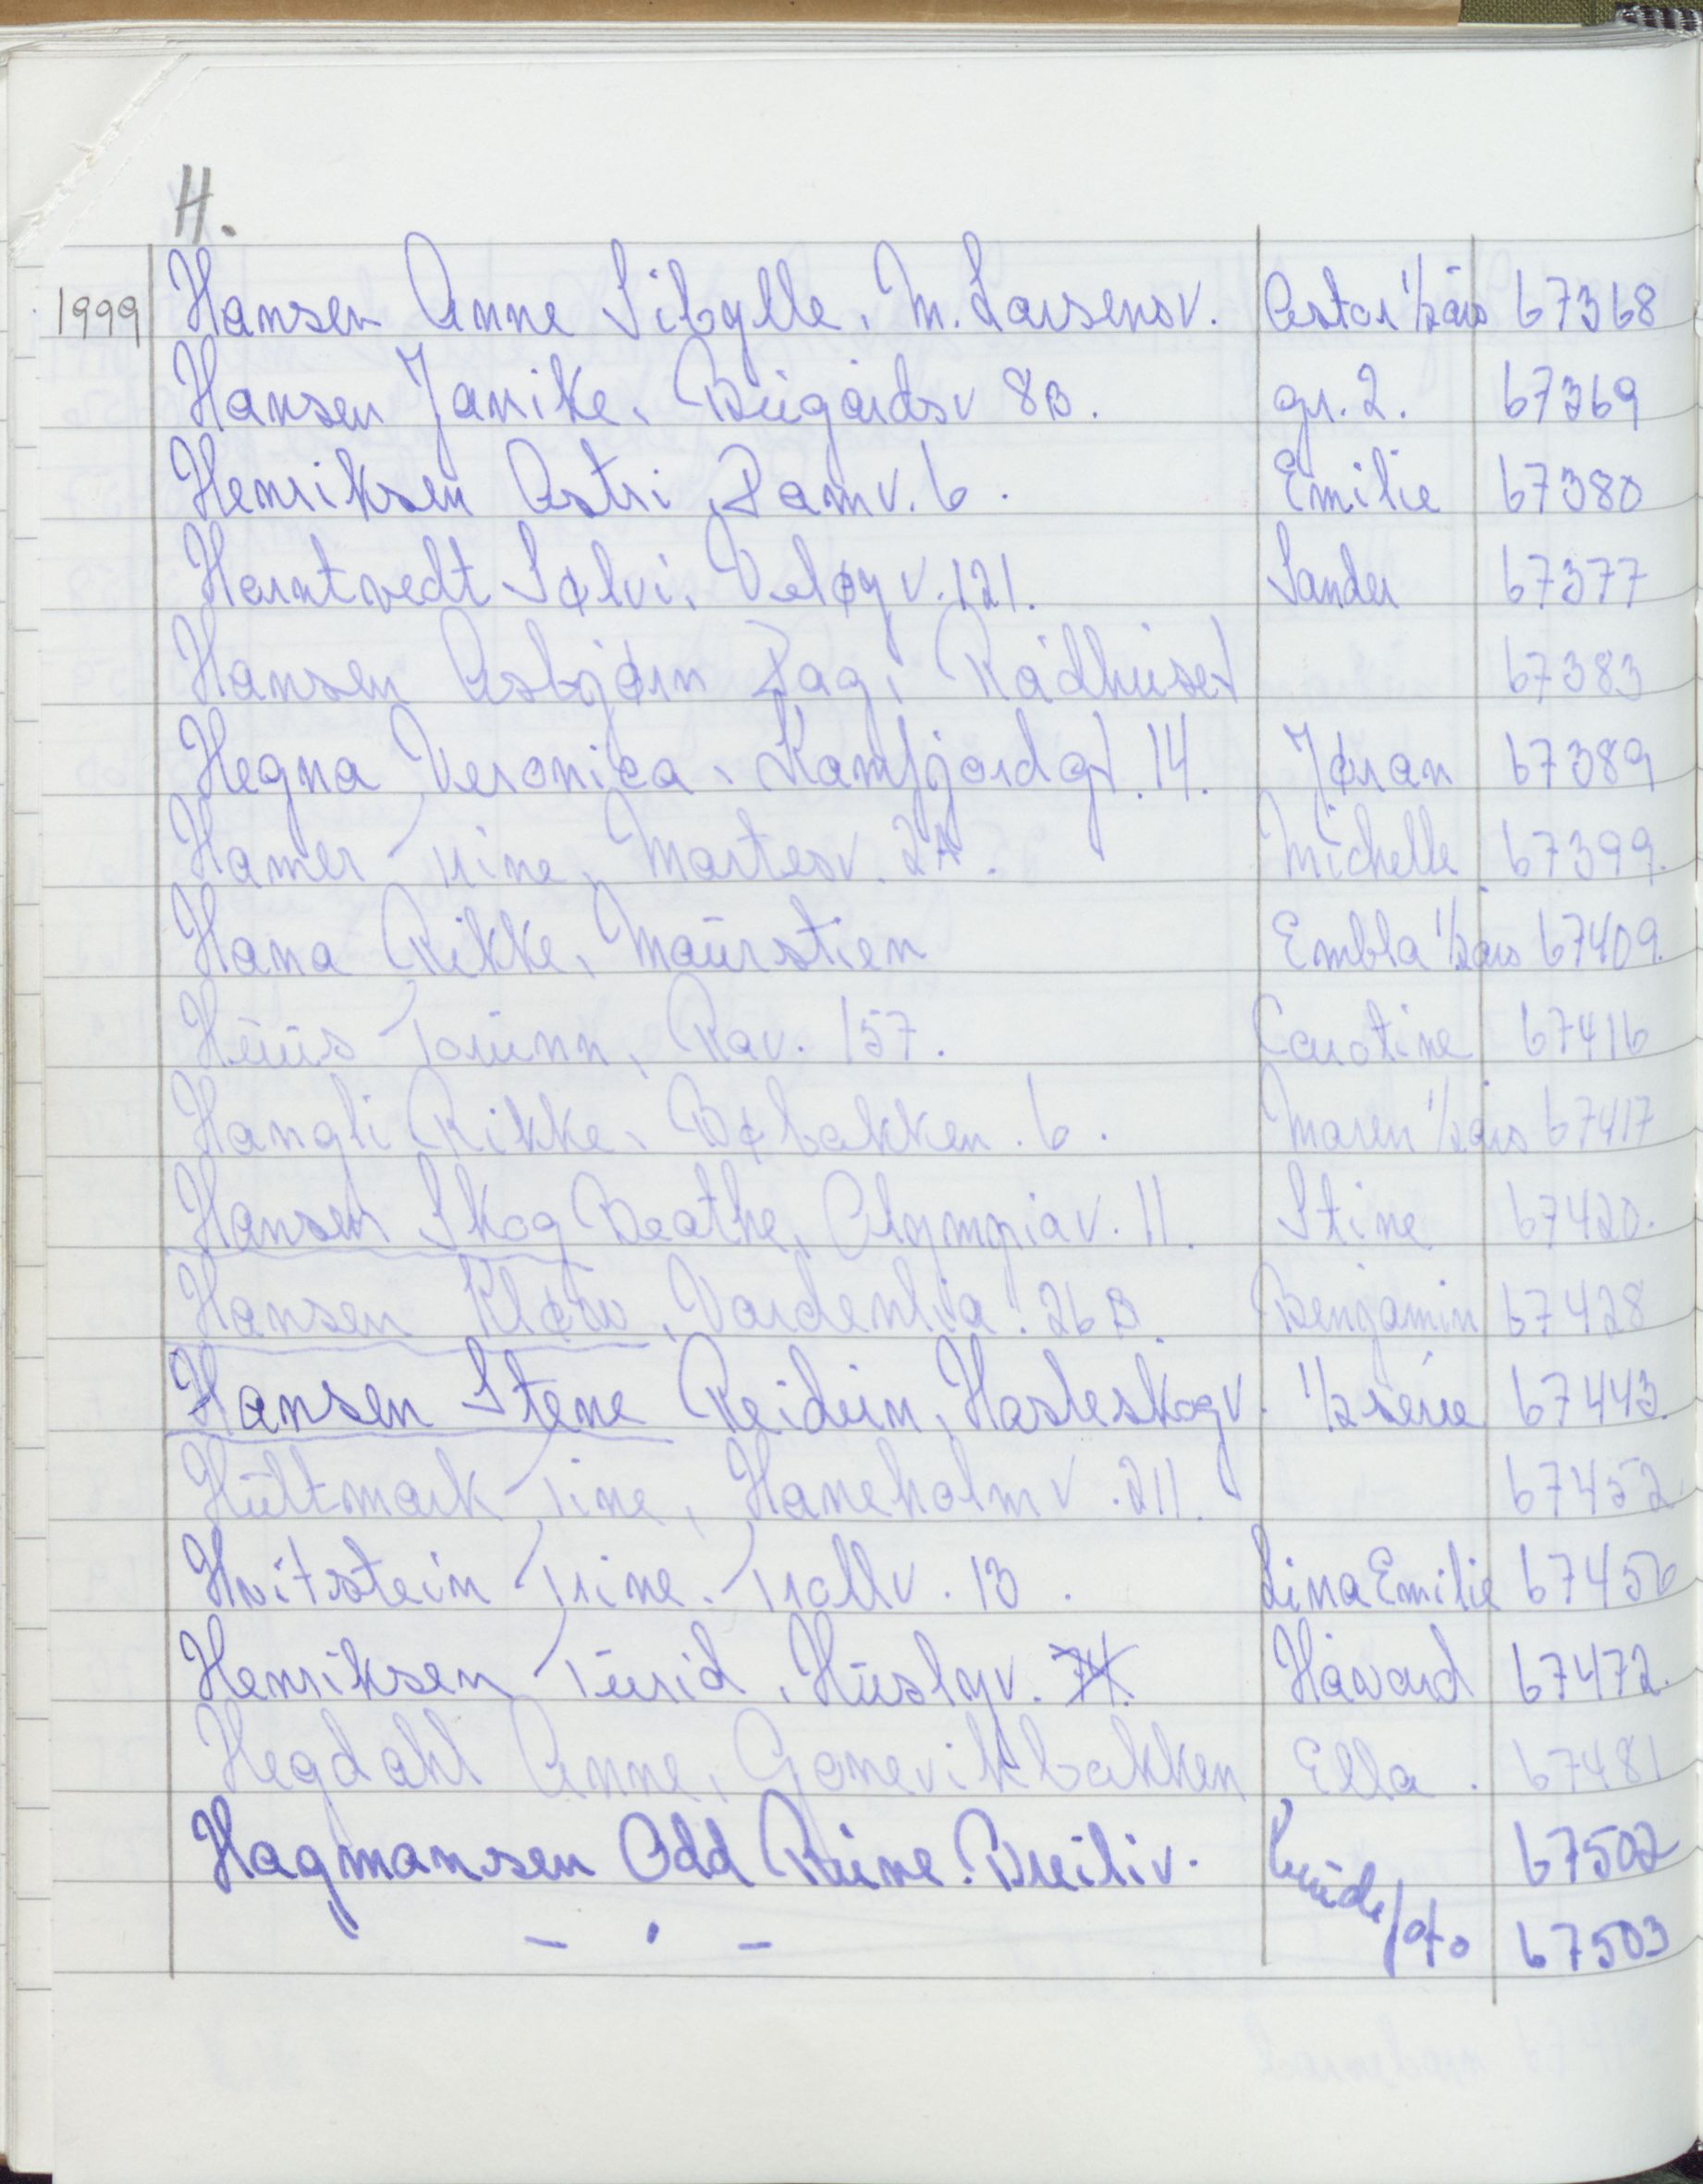 H.
1999 Hansen Anne Sibylle, M. Larsensv. Astor 1/2 års 67368
Hansen Janike, Bugårdsv 8B. gr. 2. 67369
Henriksen Astri, Damv. 6. Emilie 67380
Herntvedt Sølvi, Veløy v. 121. Sander 67377
Hansen Asbjørn Dag, Rådhuset 67383
Hegna Veronica, Kamfjordgt. 14. Jøran 67389
Hamer Trine, Martesv. 2A. Michelle 67399.
Hana Rikke, Maurstien Embla 1/2 års 67409.
Huus Torunn, Rav. 157. Carotine 67416
Hangli Rikke, Bøbakken. 6. Maren 1/2 års 67417
Hansen Skog Beathe, Olympiav. 11. Stine 67420.
Hansen Kløw, Vardenlia! 26B. Benjamin 67428
Hansen Stene Reidun, Hasleskogv. 1/2 serie 67443.
Hultmark Tine, Haneholmv. 211. 67452
Hvitstein Trine. Trollv. 13. Lina Emilie 67456
Henriksen Turid, Husbyv. 74. Håvard 67472.
Hegdahl Anne, Gonevikbakken Ella. 67481
Hagmansen Odd Rune. Breiliv. 67502
— " — foto 67503